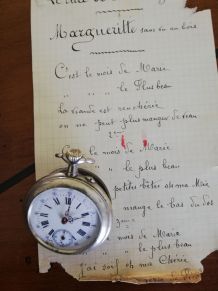 Margueritte sans vu au bois
C'est le mois de Marie
" " " le Plus beau
La viande est renchérie
on ne peut plus manger de veau
2me
le mois de Marie
le plus beau
petites bêtes
mange le bas du dos
3me
mois de Marie
le plus beau
J'ai soif oh ma Chérie